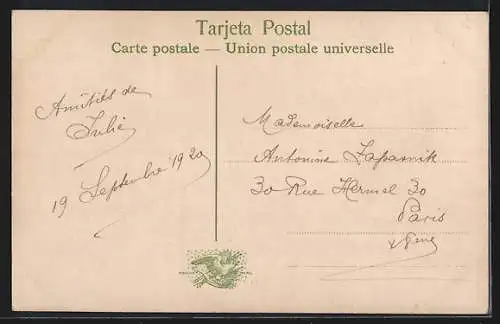 Tarjeta Postal
Carte postale — Union postale universelle
Amitiés de
Julie
19 Septembre 1920
Mademoiselle
Antonine Lapasnik
30 Rue Hermel 30
Paris